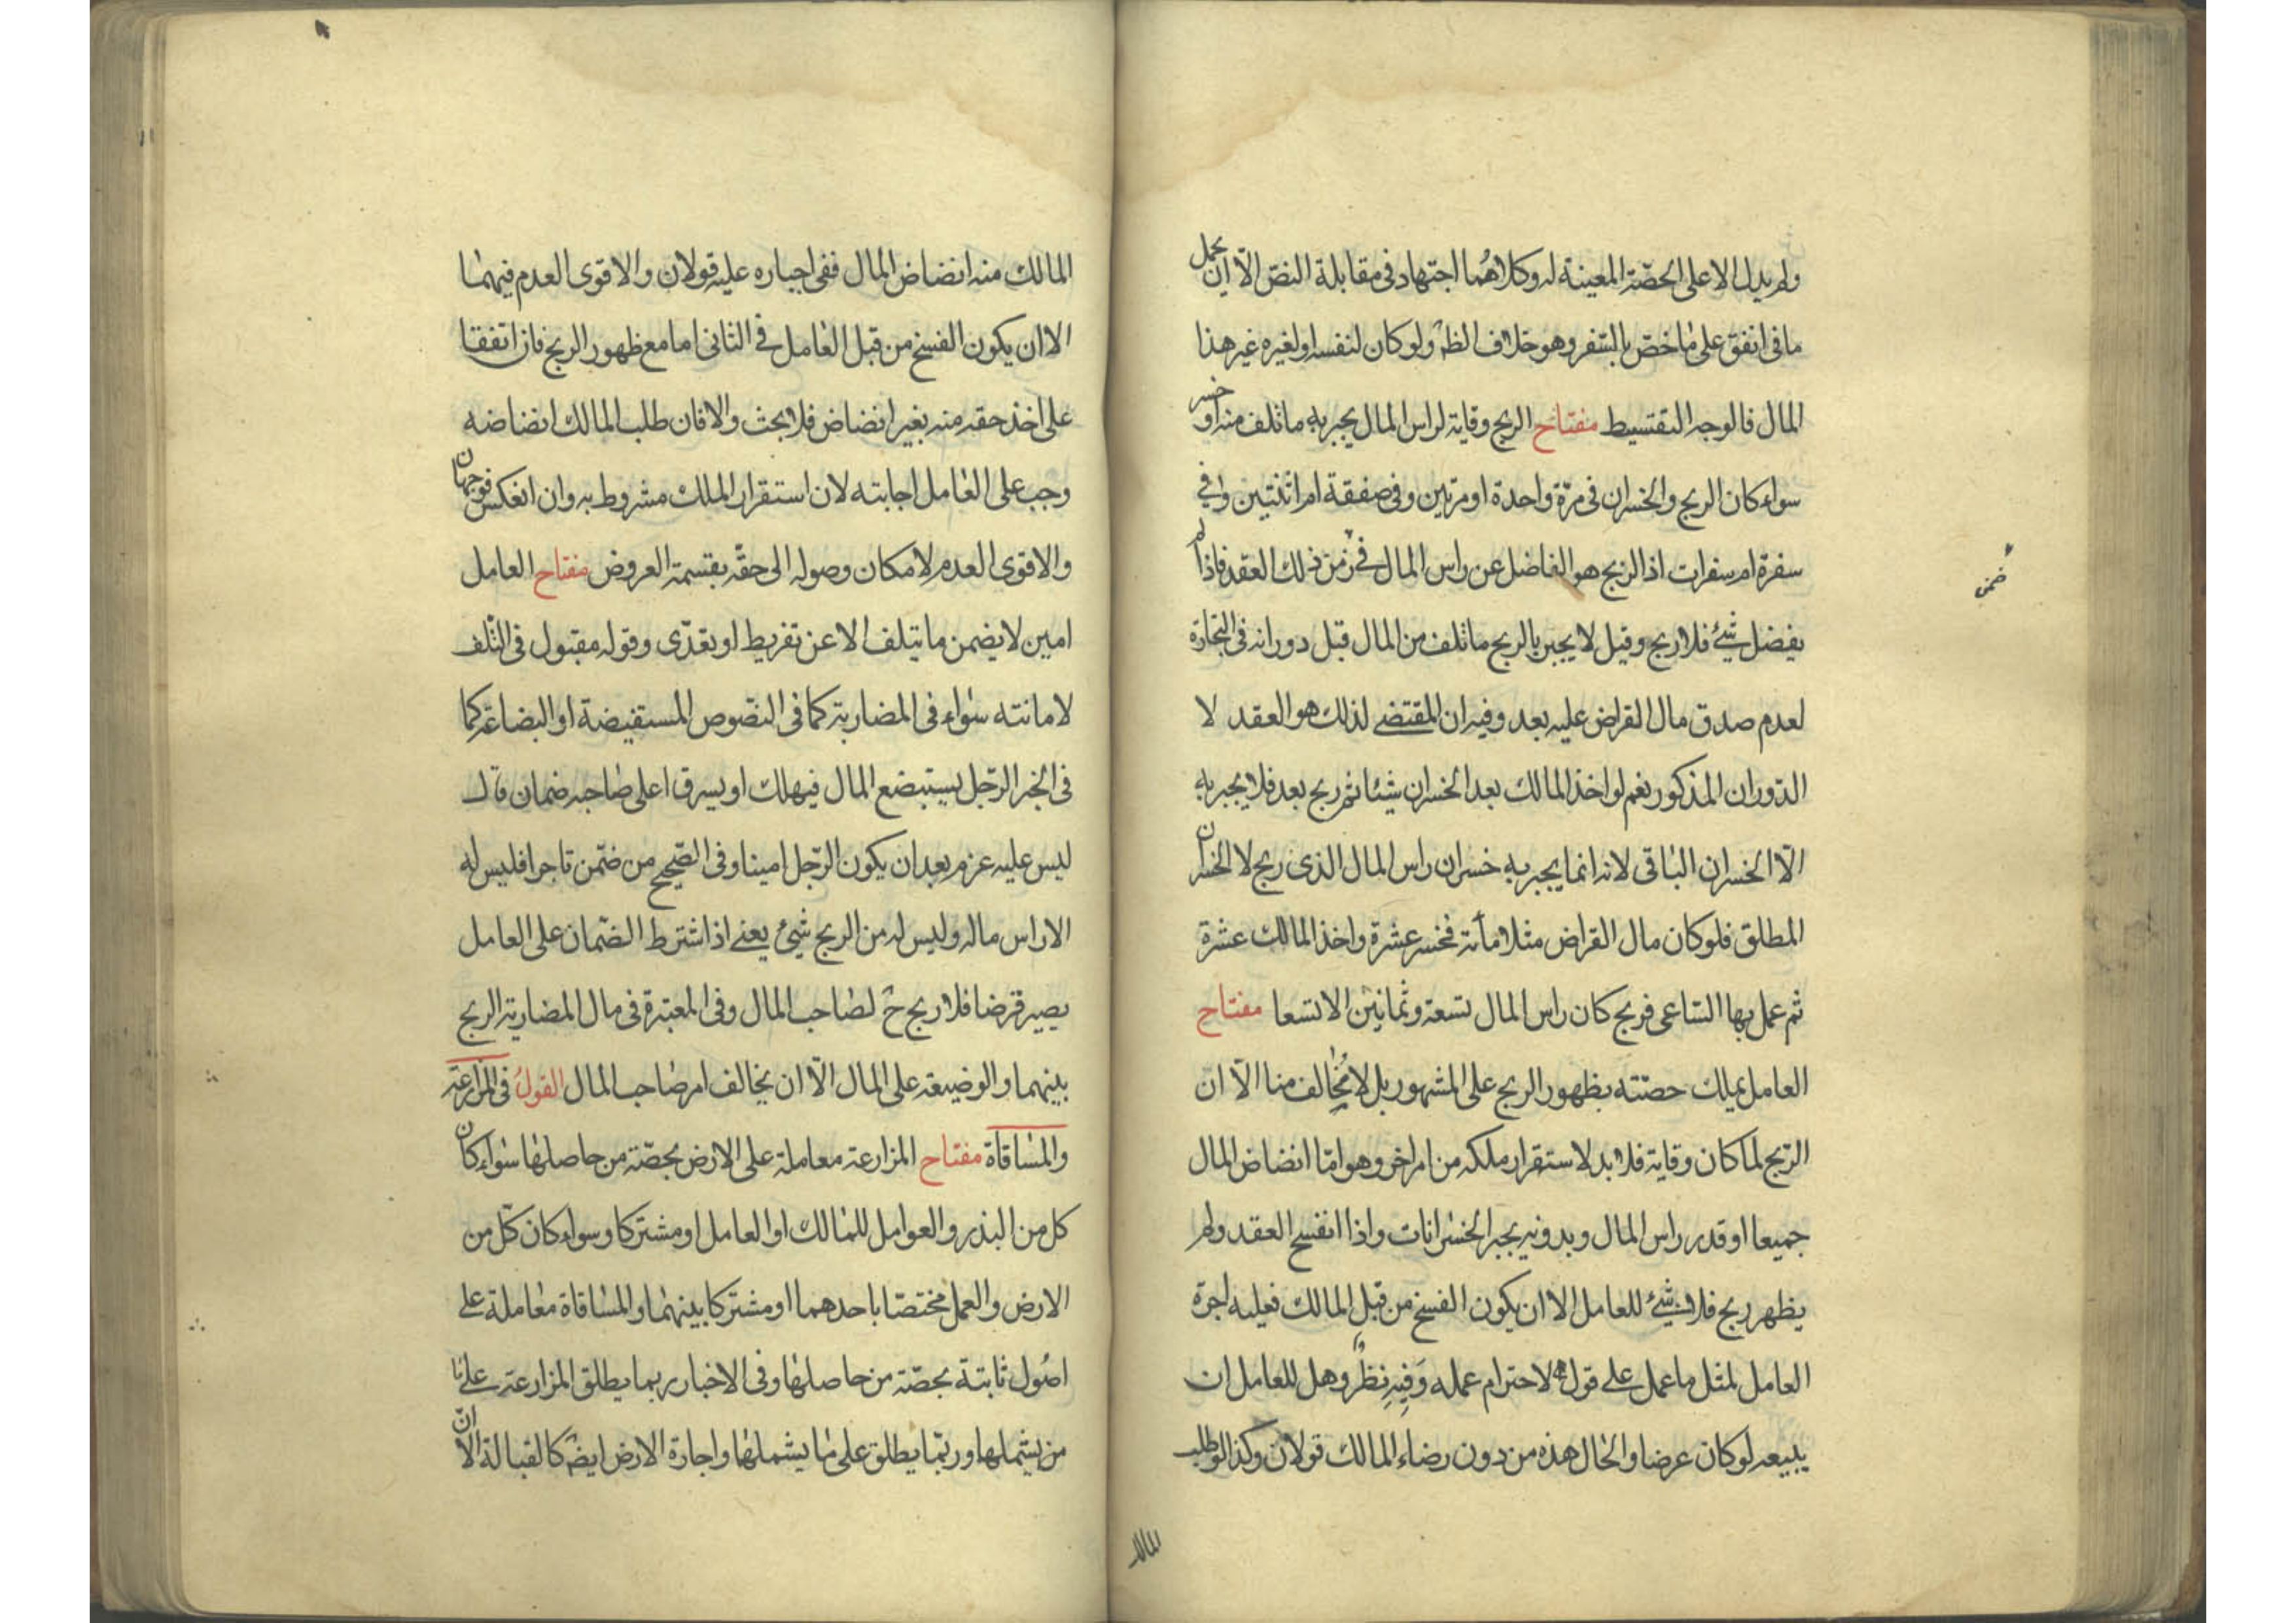 ولم يدل الا على الحصّة المعينة له وكلاهُما اجتهاد فى مقابلة النصّ الّا ان يحمل
ما فى انفق على ما خصّ بالسّفر وهو خلاف الظ ولو كان لنفسه او لغيره غير هذا
المال فالوجه التقتسيط مفتاح الربح وقاية لراس المال يجبر به ما تلف منه او خسر
سواء كان الربح والخسران فى مرّة واحدة او مرتين وفى صفقة ام اثنتين وافي
سفرة ام سفرات اذ الربح هو الفاضل عن راس المال فى زمن ذلك العقد فاذا لم
ضمن
يفضل شئ فلا ربح وقيل لا يجبر بالربح ما تلف من المال قبل دورانه فى التجارة
لعدم صدق مال القراض عليه بعد وفيه ان المقتضى لذلك هو العقد لا
الدّوران المذكور نعم لو اخذ المالك بعد الخسران شيئا ثم ربح بعد فلا يجبر به
الّا الخسران الباقى لانه انما يجبر به خسران راس المال الذى ربح لا الخسران
المطلق فلو كان مال القراض مثلا مأته فخسر عشرة واخذ المالك عشرة
ثم عمل بها الساعى فربح كان راس المال تسعة وثمانين الا تسعا مفتاح
العامل يملك حصّته بظهور الربح على المشهور بل لا مخالف منا الّا ان
الربح لما كان وقاية فلا بد لاستقرار ملكه من امر اخر وهو امّا انضاض المال
جميعا او قدر راس المال وبدونه يجبر الخسرانات واذا انفسخ العقد ولم
يظهر ربح فلا شئ للعامل الا ان يكون الفسخ من قبل المالك فعليه اجرة
العامل لمثل ما عمل على قول لاحترام عمله وفيه نظر وهل للعامل ان
يبيعه لو كان عرضا والحال هذه من دون رضاء المالك قولان وكذا لو طلب
المالك
المالك منه انضاض المال ففى اجباره عليه قولان والاقوى العدم فيهما
الا ان يكون الفسخ من قبل العامل فى الثانى اما مع ظهور الربح فان اتفقا
على اخذ حقه منه بغير انضاض فلا بحث والا فان طلب المالك انضاضه
وجب على العامل اجابته لان استقرار الملك مشروط به وان انعكس فوجهان
والاقوى العدم لامكان وصوله الى حقّه بقسمة العروض مفتاح العامل
امين لا يضمن ما يتلف الا عن تفريط او تعدّى وقوله مقبول فى التّلف
لامانته سواء فى المضاربة كما فى النصّوص المستفيضة او البضاعة كما
فى الخبر الرّجل يستبضع المال فيهلك او يسرق اعلى صاحبه ضمان قال
ليس عليه غرم بعد ان يكون الرّجل امينا وفى الصّحيح من ضمّن تاجرا فليس له
الا راس ماله وليس له من الربح شئ يعنى اذا اشترط الضمان على العامل
يصير قرضا فلا ربح ح لصاحب المال وفى المعتبرة فى مال المضاربة الربح
بينهما والوضيعة على المال الّا ان يخالف امر صاحب المال القول فى المزارعة
والمساقاة مفتاح المزارعة معاملة على الارض بحصّة من حاصلها سواء كان
كل من البذر والعوامل للمالك او العامل او مشتركا وسواء كان كلّ من
الارض والعمل مختصّا باحدهما او مشتركا بينهما والمساقاة معاملة على
اصُول ثابتة بحصّة من حاصلها وفى الاخبار ربما يطلق المزارعة على ما
من يشملها وربّما يطلق على ما يشملها واجارة الارض ايض كالقبالة الا انّ